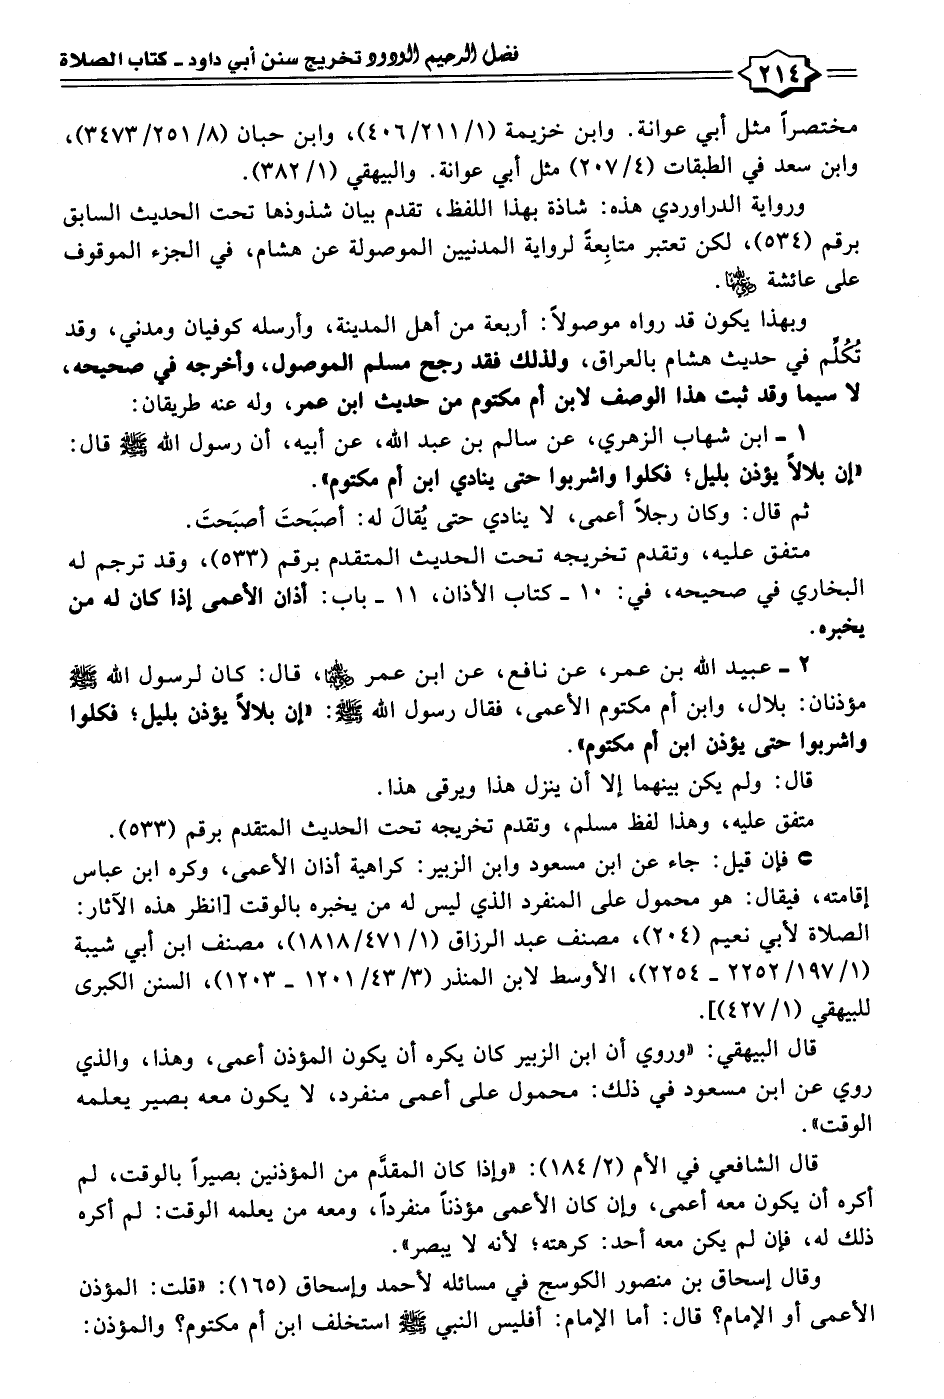 ٢١٤ فضل الرحيم الودود تخريج سنن أبي داود ـ كتاب الصلاة
مختصراً مثل أبي عوانة. وابن خزيمة (٤٠٦/٢١١/١)، وابن حبان (٣٤٧٣/٢٥١/٨)،
وابن سعد في الطبقات (٢٠٧/٤) مثل أبي عوانة. والبيهقي (٣٨٢/١).
ورواية الدراوردي هذه: شاذة بهذا اللفظ، تقدم بيان شذوذها تحت الحديث السابق
برقم (٥٣٤)، لكن تعتبر متابِعةً لرواية المدنيين الموصولة عن هشام، في الجزء الموقوف
على عائشة رضي الله عنها.
وبهذا يكون قد رواه موصولاً: أربعة من أهل المدينة، وأرسله كوفيان ومدني، وقد
تُكُلِّم في حديث هشام بالعراق، ولذلك فقد رجح مسلم الموصول، وأخرجه في صحيحه،
لا سيما وقد ثبت هذا الوصف لابن أم مكتوم من حديث ابن عمر، وله عنه طريقان:
١ ـ ابن شهاب الزهري، عن سالم بن عبد الله، عن أبيه، أن رسول الله ﷺ قال:
«إن بلالاً يؤذن بليل؛ فكلوا واشربوا حتى ينادي ابن أم مكتوم».
ثم قال: وكان رجلاً أعمى، لا ينادي حتى يُقالَ له: أصبَحتَ أصبَحتَ.
متفق عليه، وتقدم تخريجه تحت الحديث المتقدم برقم (٥٣٣)، وقد ترجم له
البخاري في صحيحه، في: ١٠ ـ كتاب الأذان، ١١ ـ باب: أذان الأعمى إذا كان له من
يخبره.
٢ ـ عبيد الله بن عمر، عن نافع، عن ابن عمر رضي الله عنهما، قال: كان لرسول الله ﷺ
مؤذنان: بلال، وابن أم مكتوم الأعمى، فقال رسول الله ﷺ: «إن بلالاً يؤذن بليل؛ فكلوا
واشربوا حتى يؤذن ابن أم مكتوم».
قال: ولم يكن بينهما إلا أن ينزل هذا ويرقى هذا.
متفق عليه، وهذا لفظ مسلم، وتقدم تخريجه تحت الحديث المتقدم برقم (٥٣٣).
فإن قيل: جاء عن ابن مسعود وابن الزبير: كراهية أذان الأعمى، وكره ابن عباس
إقامته، فيقال: هو محمول على المنفرد الذي ليس له من يخبره بالوقت [انظر هذه الآثار:
الصلاة لأبي نعيم (٢٠٤)، مصنف عبد الرزاق (١٨١٨/٤٧١/١)، مصنف ابن أبي شيبة
(٢٢٥٢/١٩٧/١ ـ ٢٢٥٤)، الأوسط لابن المنذر (١٢٠١/٤٣/٣ ـ ١٢٠٣)، السنن الكبرى
للبيهقي (٤٢٧/١)].
قال البيهقي: «وروي أن ابن الزبير كان يكره أن يكون المؤذن أعمى، وهذا، والذي
روي عن ابن مسعود في ذلك: محمول على أعمى منفرد، لا يكون معه بصير يعلمه
الوقت».
قال الشافعي في الأم (١٨٤/٢): «وإذا كان المقدَّم من المؤذنين بصيراً بالوقت، لم
أكره أن يكون معه أعمى، وإن كان الأعمى مؤذناً منفرداً، ومعه من يعلمه الوقت: لم أكره
ذلك له، فإن لم يكن معه أحد: كرهته؛ لأنه لا يبصر».
وقال إسحاق بن منصور الكوسج في مسائله لأحمد وإسحاق (١٦٥): «قلت: المؤذن
الأعمى أو الإمام؟ قال: أما الإمام: أفليس النبي ﷺ استخلف ابن أم مكتوم؟ والمؤذن: